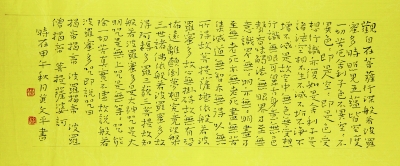 觀自在菩薩行深般若波羅
蜜多時照見五蘊皆空度
一切苦厄舍利子色不異空空不
異色色即是空空即是色受
想行識亦復如是舍利子是諸
法空相不生不滅不垢不淨不
增不減是故空中無色無受想行
識無眼耳鼻舌身意無色聲
香味觸法無眼界乃至無意識界
無無明亦無無明盡乃
至無老死亦無老死盡無苦
集滅道無智亦無得以無
所得故菩提薩埵依般若波
羅蜜多故心無罣礙無罣礙
故無有恐怖遠離顛倒夢想究竟涅槃
三世諸佛依般若波羅蜜多故
得阿耨多羅三藐三菩提故知
般若波羅蜜多是大神咒是大
明咒是無上咒是無等等咒能
除一切苦真實不虛故說般若
波羅蜜多咒即說咒曰
揭諦揭諦 波羅揭諦 波羅
僧揭諦 菩提薩婆訶
時在甲午秋月 平書